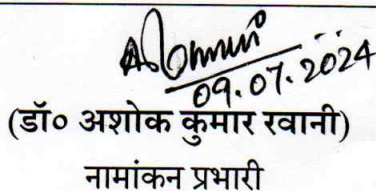 09.07.2024
(डॉ० अशोक कुमार रवानी)
नामांकन प्रभारी